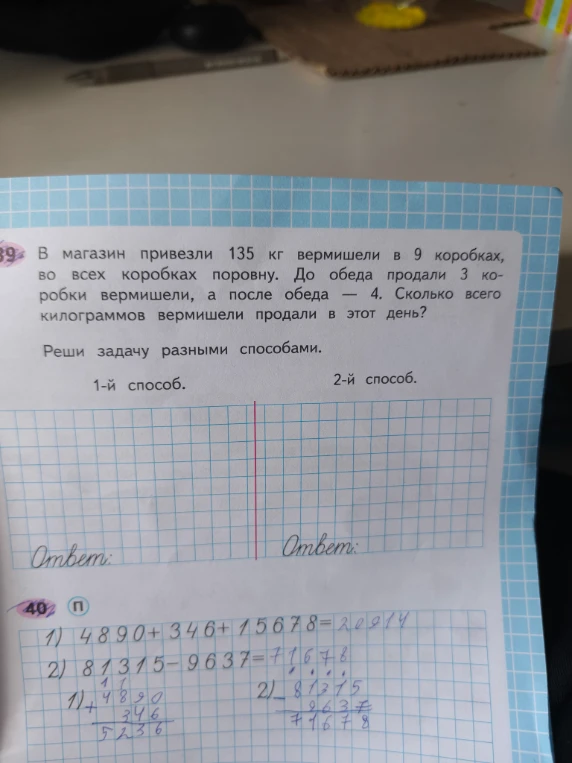 39 В магазин привезли 135 кг вермишели в 9 коробках,
во всех коробках поровну. До обеда продали 3 ко-
робки вермишели, а после обеда — 4. Сколько всего
килограммов вермишели продали в этот день?
Реши задачу разными способами.
1-й способ. 2-й способ.
Ответ: Ответ:
40 П
1) 4890+346+15678=20914
2) 81315-9637=71678
1) 2)
1 1
+ 4890 - 81315
346 9637
5236 71678